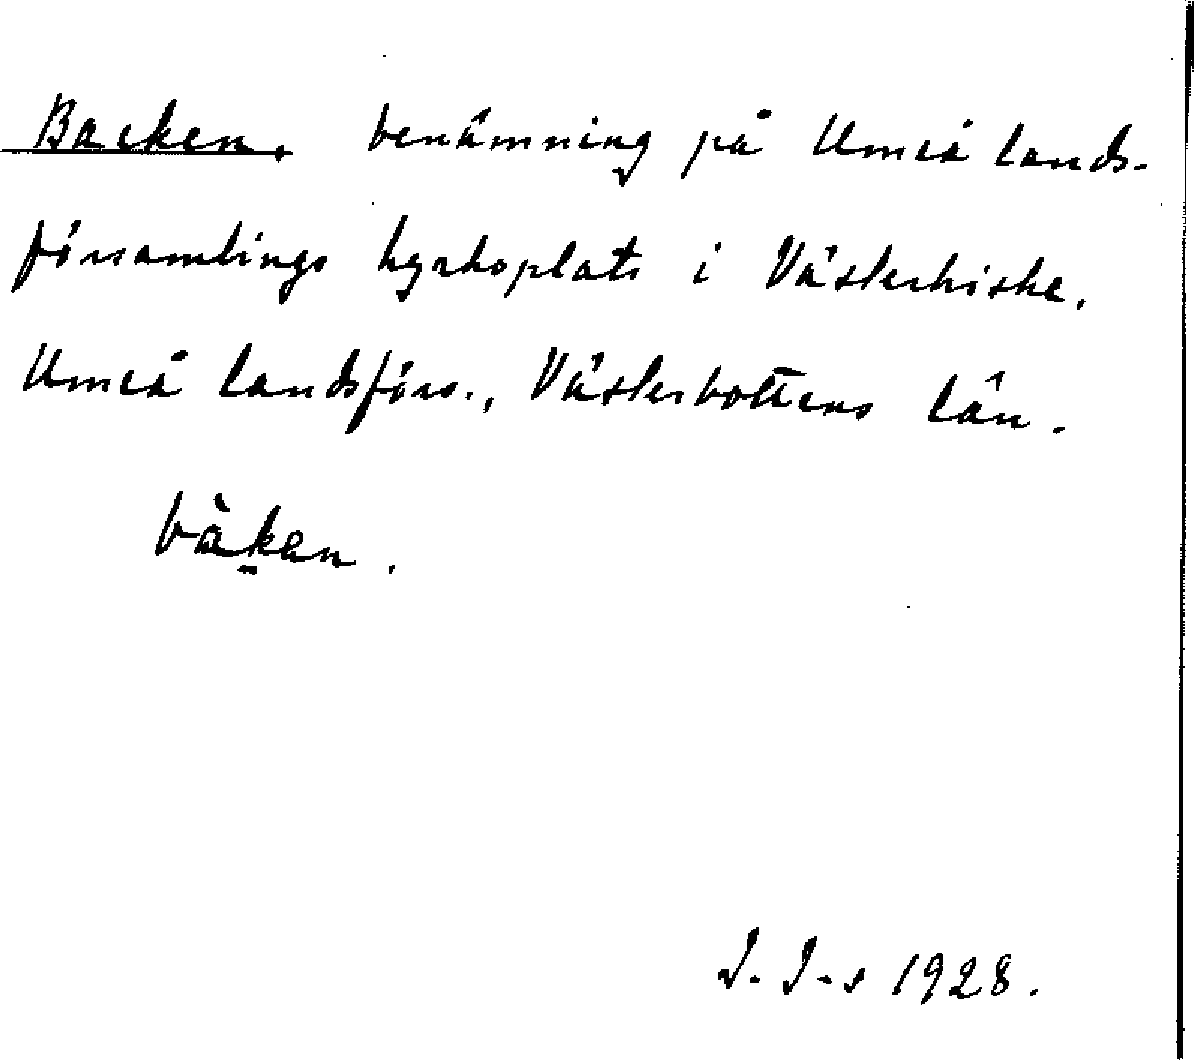 Backen, benämning på Umeå lands-
församlings kyrkoplats i Västerhiske,
Umeå landsförs., Västerbottens län.
bàk̠en.
J. J-s 1928.